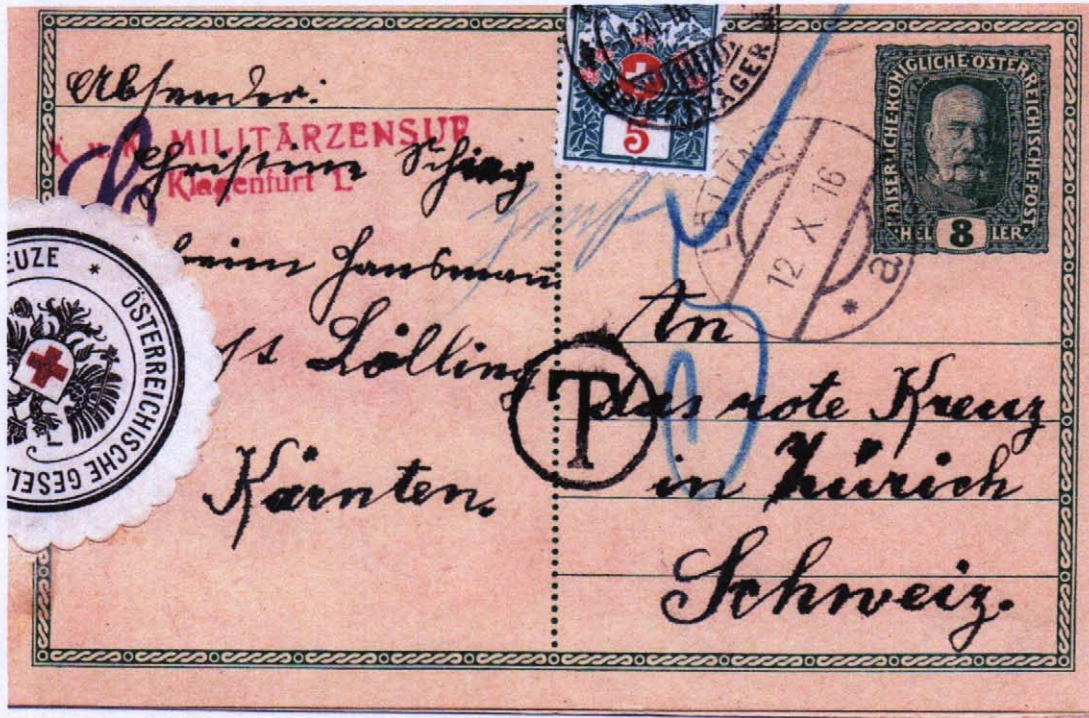 Absender:
MILITÄRZENSUR
Klagenfurt 1.
Christine
beim Hausmann
Lölling
Kärnten.
EUZE * ÖSTERREICHISCHE GESEL
5
XI 16
BRIEFTRÄGER
KAISERLICHE KÖNIGLICHE ÖSTERREICHISCHE POST
HEL 8 LER
LÖLLING
12 X 16
* a
T
An
das rote Kreuz
in Zürich
Schweiz.